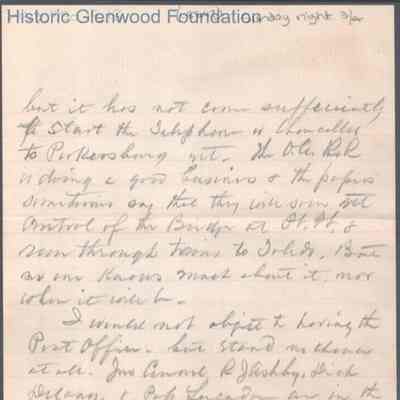 Historic Glenwood Foundation
night
but it has not come sufficiently
to Start the Telephone
to Parkersburg yet. The O. River
is doing a good business & the papers
sometimes say that they will soon get
Control of the Bridge at Pt. Pt. &
run through trains to Toledo. But
no one Knows much about it, nor
when it will be.
I would not object to having the
Post Office - but Stand no chance
at all. Jno R. Ashby, Dick
& Pop are in the